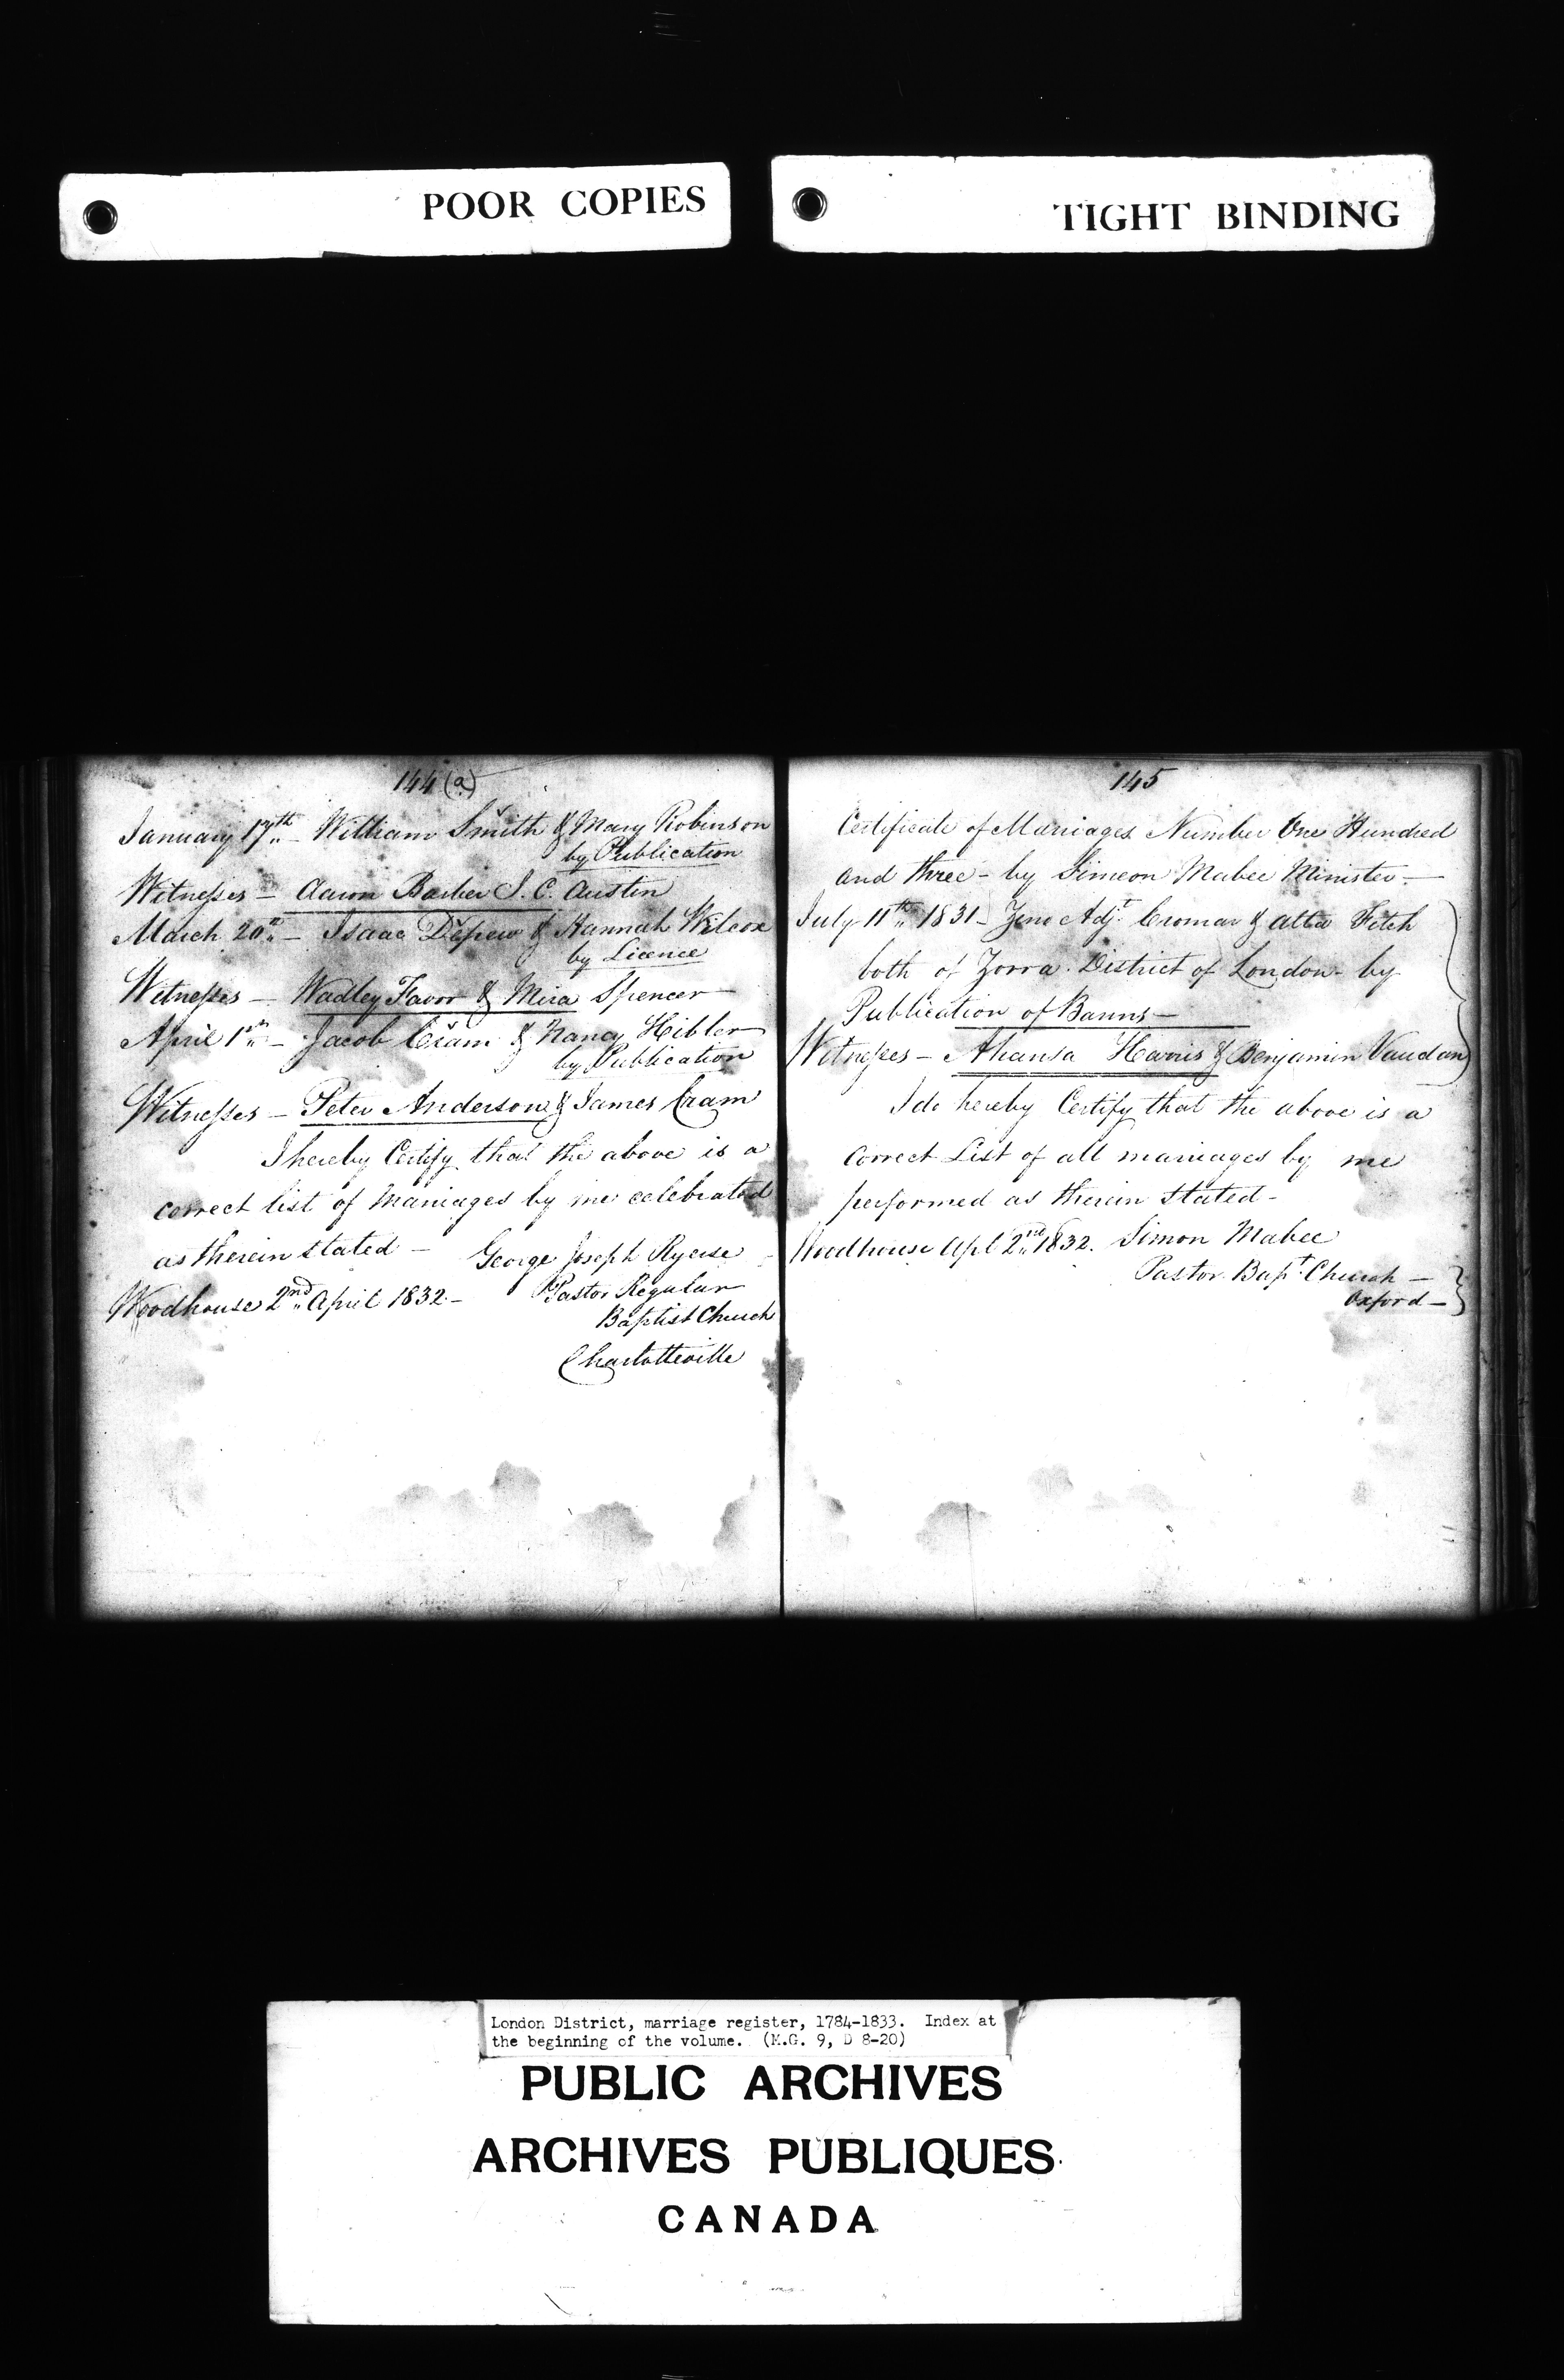 POOR COPIES
TIGHT BINDING
144 (a)
January 17th - William Smith & Mary Robinson
by Publication
Witnesses - Aaron Barber J. C. Austin
March 20th - Isaac Depew & Hannah Wilcox
by Licence
Witnesses - Wadley Favor & Mira Spencer -
April 1st - Jacob Cram & Nancy Hibler
by Publication
Witnesses - Peter Anderson & James Cram
I hereby Certify that the above is a
correct list of Marriages by me celebrated
as therein stated - George Joseph Ryerse
Woodhouse 2nd April 1832 - Pastor Regular
Baptist Church
Charlotteville
145
Certificate of Marriages Number One Hundred
and three - by Simeon Mabee Minister -
July 11th 1831 - Adjt Cromar & Fitch
both of Zorra District of London - by
Publication of Banns -
Witnesses - Harris & Benjamin Vaudan
I do hereby Certify that the above is a
Correct List of all marriages by me
performed as therein Stated -
Woodhouse Apl 2nd 1832. Simon Mabee
Pastor Bapt Church -
Oxford -
London District, marriage register, 1784-1833. Index at
the beginning of the volume. (M.G. 9, D 8-20)
PUBLIC ARCHIVES
ARCHIVES PUBLIQUES
CANADA